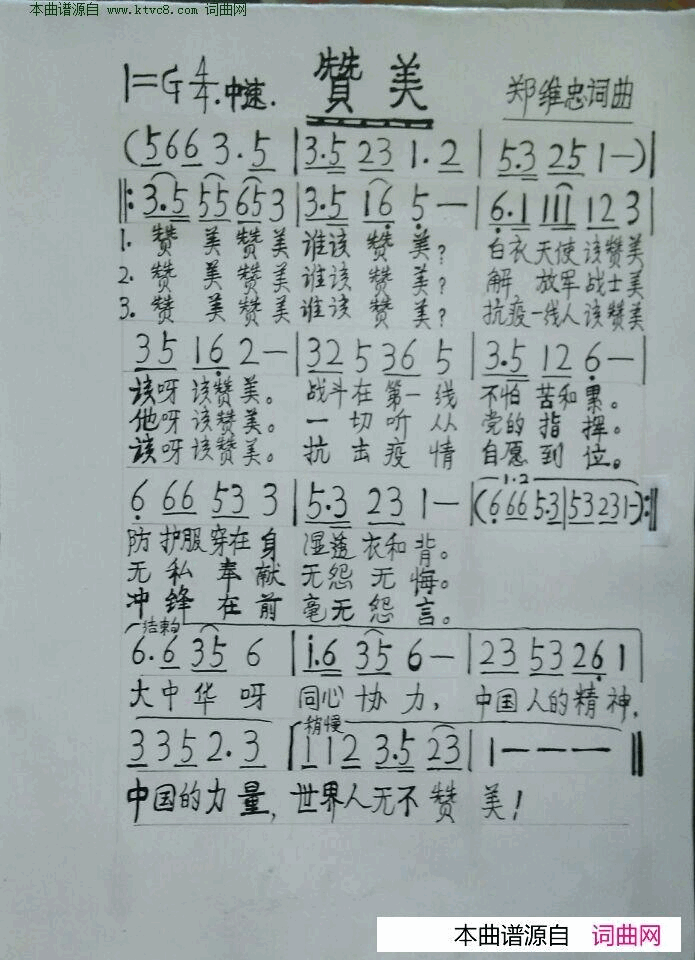 本曲谱源自 www.ktvc8.com 词曲网
1=G 4/4 .中速. 赞美 郑维忠词曲
(566 3.5 | 3.5 23 1.2 | 5.3 25 1—)
‖: 3.5 55 653 | 3.5 16 5— | 6.1 111 12 3
1. 赞 美 赞美 谁该 赞 美? 白衣天使该赞美
2. 赞 美 赞美 谁该 赞 美? 解 放军战士美
3. 赞 美 赞美 谁该 赞 美? 抗疫一线人该赞美
35 16 2— | 32 5 36 5 | 3.5 12 6— |
该呀该赞美。 战斗在第一线 不怕苦和累。
他呀该赞美。 一切听从 党的指挥。
该呀该赞美。 抗击疫情 自愿到位。
1.2
6 66 53 3 | 5.3 23 1— | (6 66 53.3 | 53 23 1—) :‖
防护服穿在身 湿透衣和背。
无私奉献 无怨无悔。
冲锋在前 毫无怨言。
结束句
6.6 35 6 | i.6 35 6— | 23 53 26 1
大中华呀 同心协力, 中国人的精神,
稍慢
3 3 5 2.3 | 1 1 2 3.5 23 | 1——— ‖
中国的力量, 世界人无不赞 美!
本曲谱源自 词曲网